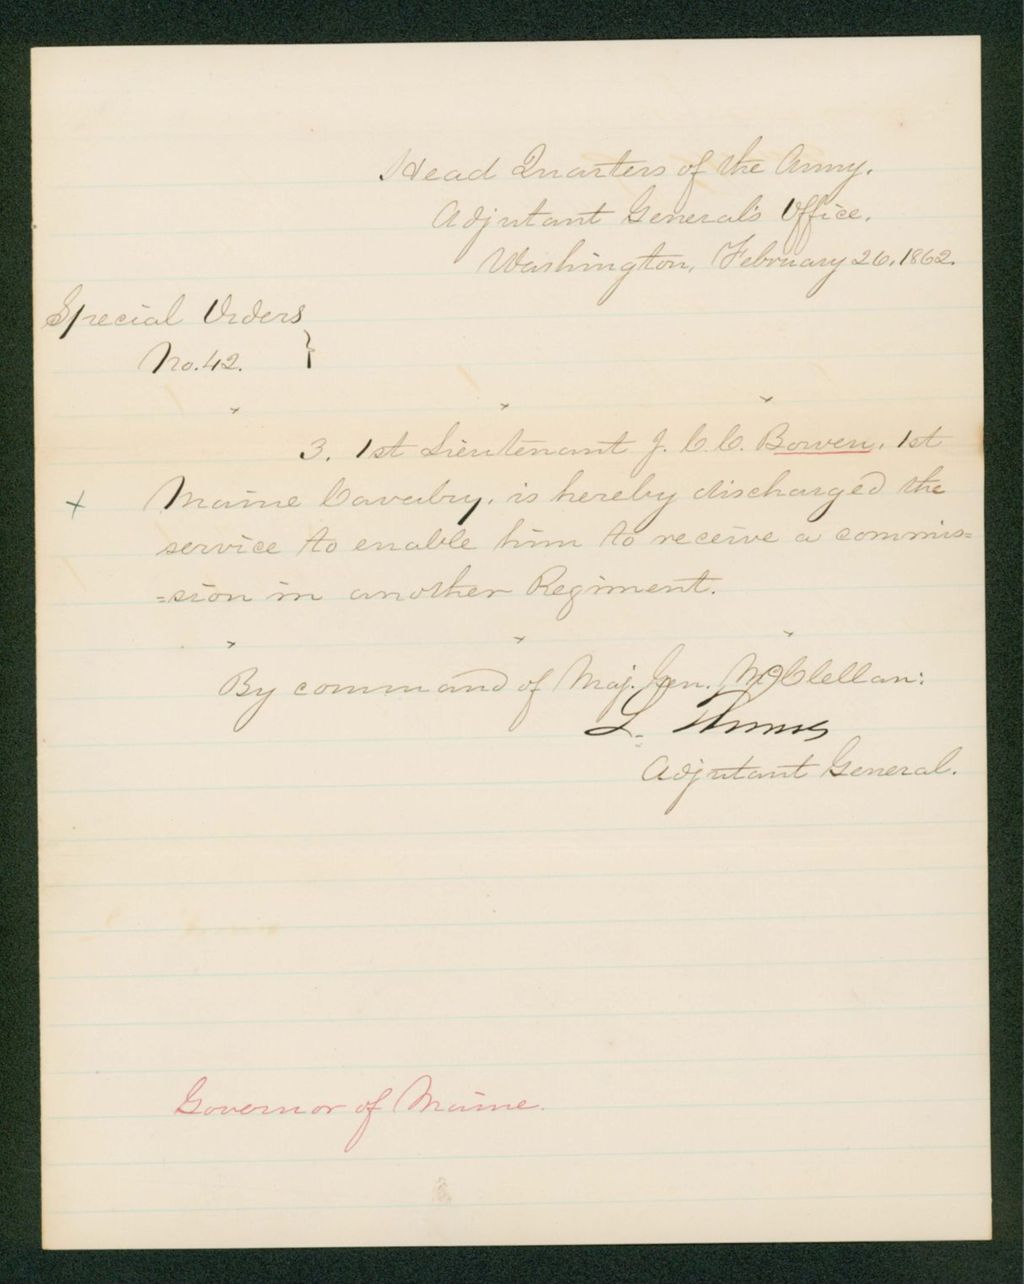 Head Quarters of the Army.
Adjutant General's Office.
Washington, February 26, 1862.
Special Orders }
No. 42.
" " "
3. 1st Lieutenant J. C. C. Bowen, 1st
+ Maine Cavalry, is hereby discharged the
service to enable him to receive a commis=
=sion in another Regiment.
" " "
By command of Maj. Gen. McClellan:
L. Thomas
Adjutant General.
Governor of Maine.